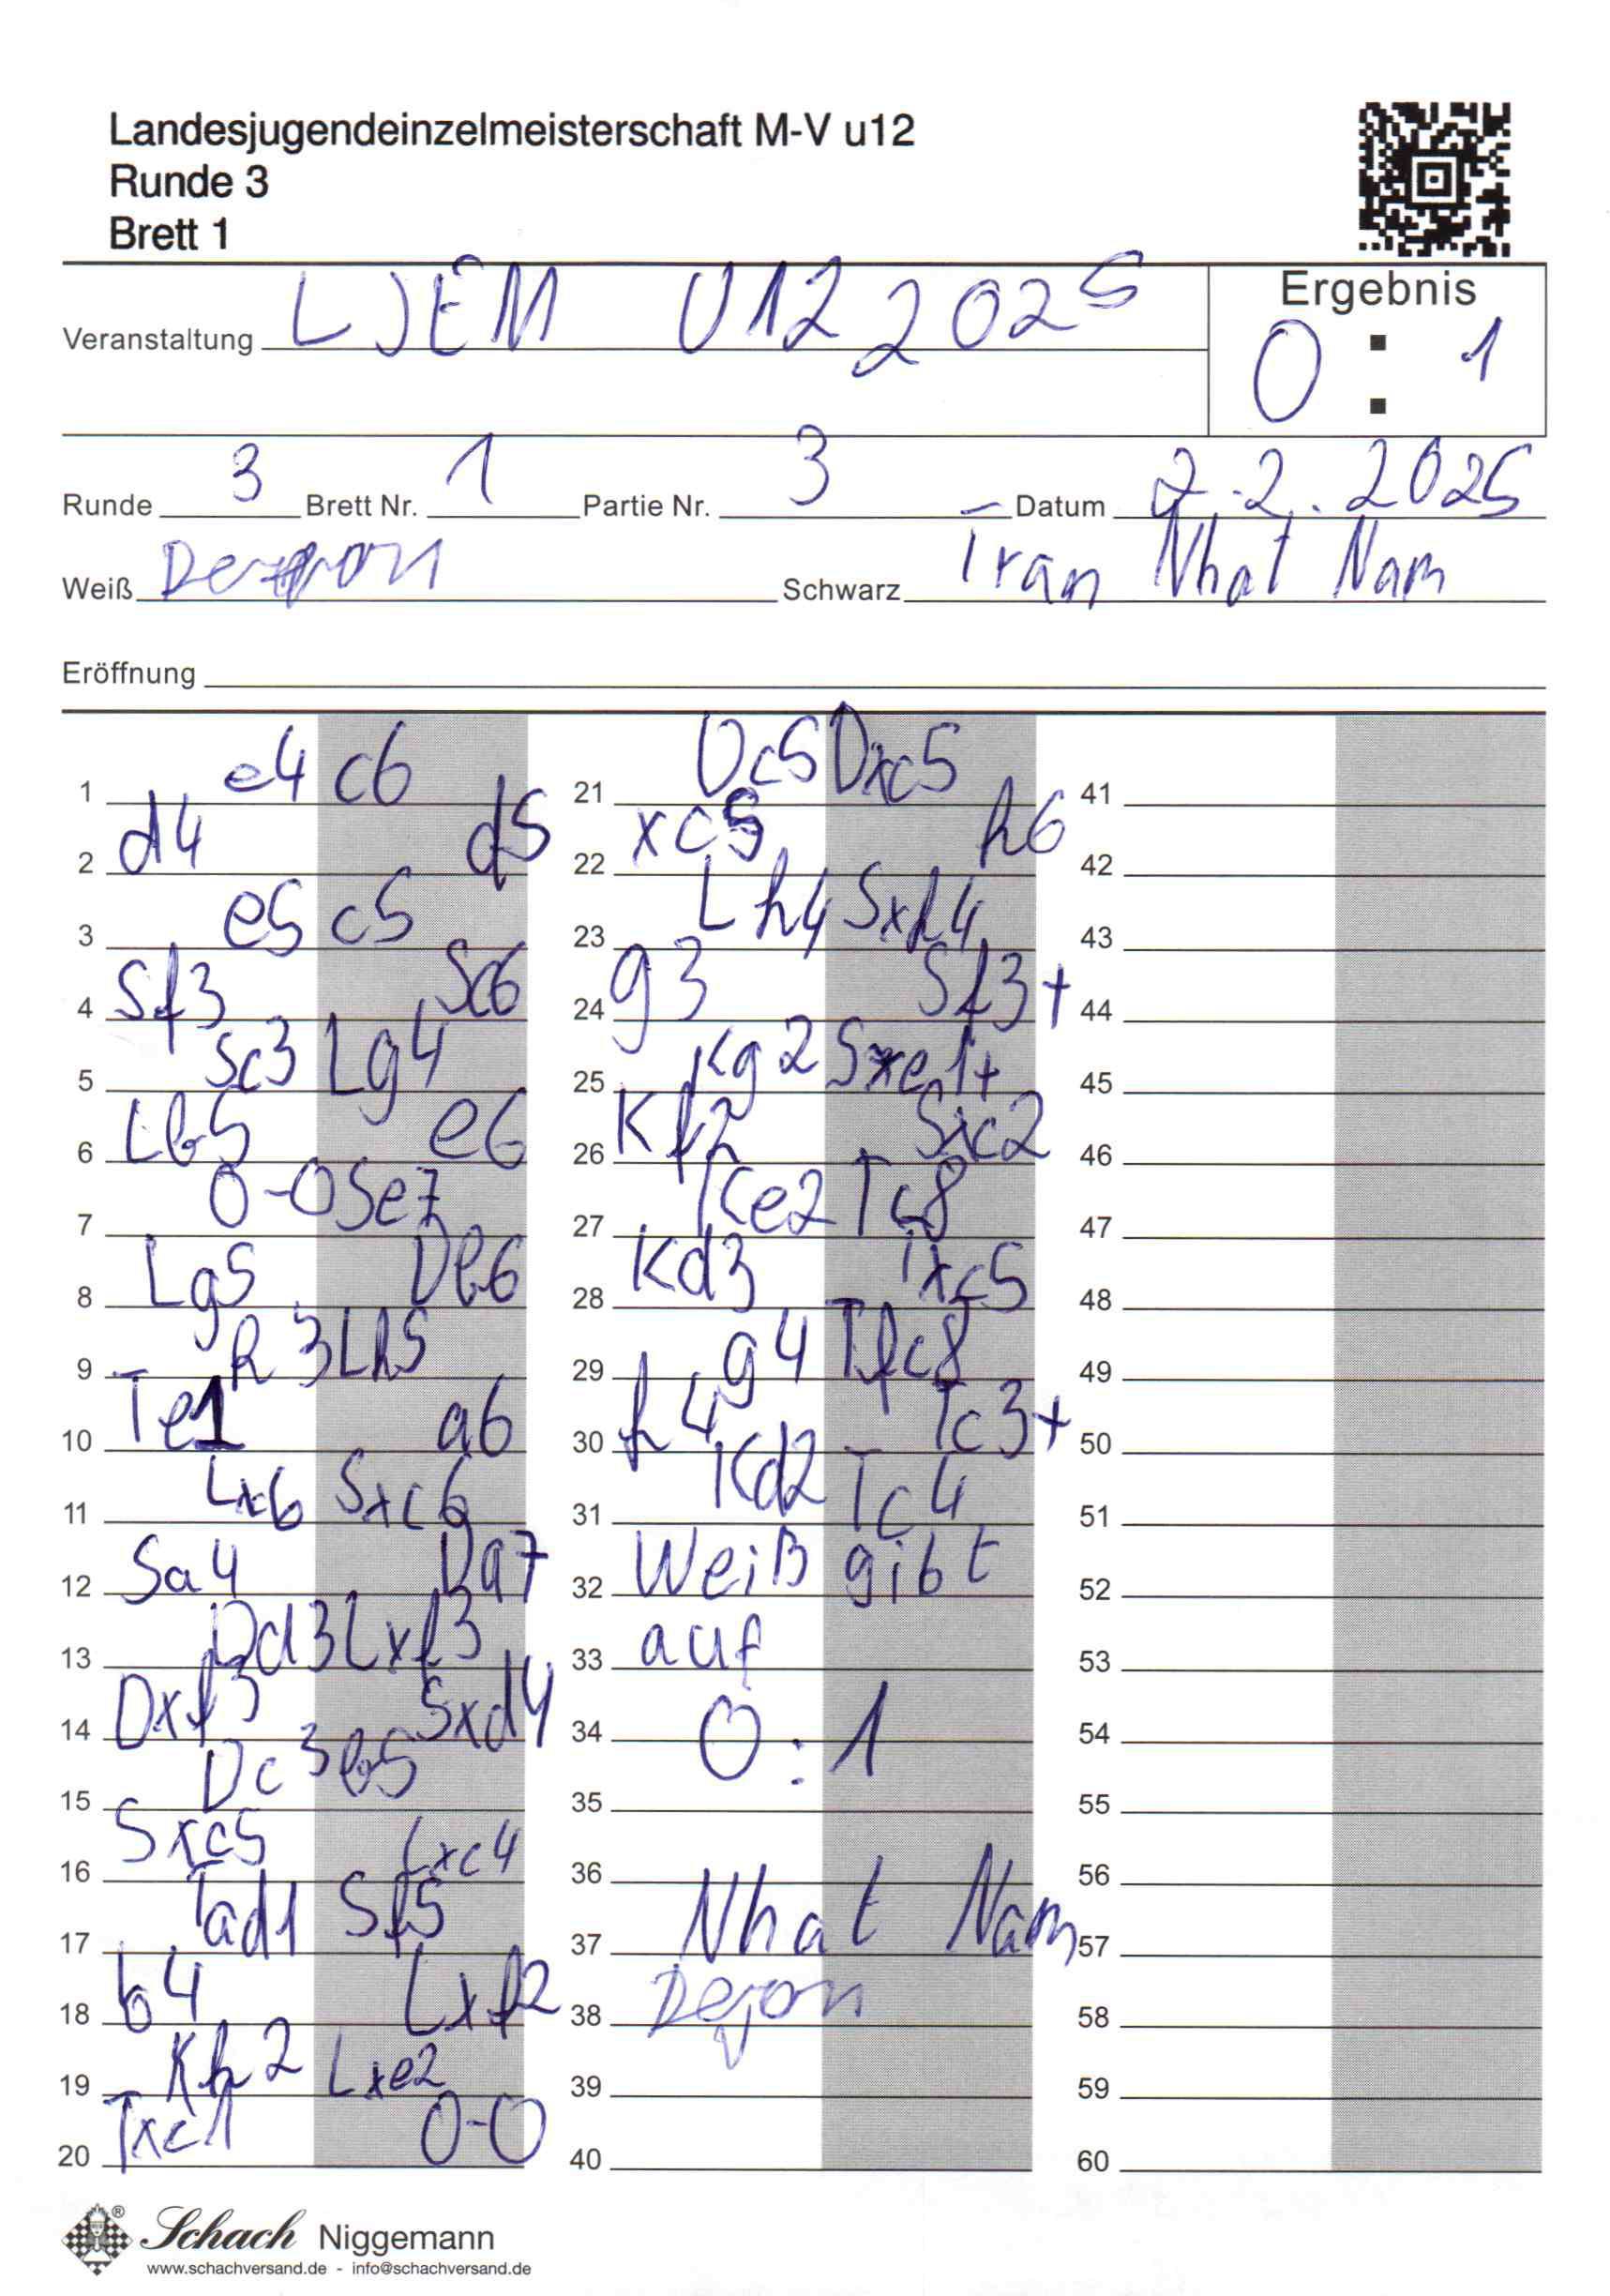 Landesjugendeinzelmeisterschaft M-V u12
Runde 3
Brett 1
Veranstaltung LJEM U12 2025
Ergebnis
0 : 1
Runde 3 Brett Nr. 1 Partie Nr. 3 Datum 2.2.2025
Weiß Schwarz Tran Nhat Nam
Eröffnung
1 e4 c6
2 d4 d5
3 e5 c5
4 Sf3 Sc6
5 Sc3 Lg4
6 Lb5 e6
7 0-0 Se7
8 Lg5 Db6
9 h3 Lh5
10 Te1 a6
11 Lxc6 Sxc6
12 Sa4 Da7
13 Dd3 Lxf3
14 Dxf3 Sxd4
15 Dc3 b5
16 Sxc5 Lxc4
17 Tad1 Sf5
18 b4 Lxf2
19 Kh2 Lxe2
20 Txc1 0-0
21 Dc5 Dxc5
22 xc5 h6
23 Lh4 Sxh4
24 g3 Sf3+
25 Kg2 Sxe1+
26 Kf2 Sxc2
27 Ke2 Tc8
28 Kd3 Txc5
29 g4 Tfc8
30 h4 Tc3+
31 Kd2 Tc4
32 Weiß gibt
33 auf
34 0:1
35
36
37 Nhat Nam
38 Dejon
39
40
41
42
43
44
45
46
47
48
49
50
51
52
53
54
55
56
57
58
59
60
Schach Niggemann
www.schachversand.de - info@schachversand.de